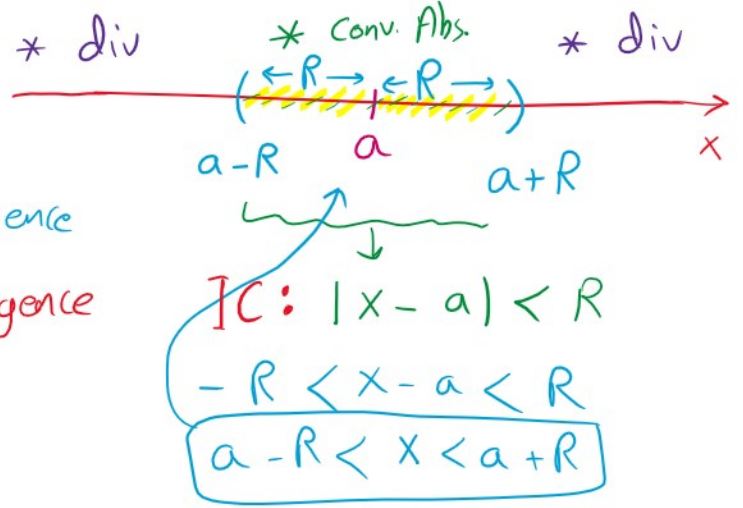 * div * Conv. Abs. * div
( ← R → ← R → )
a - R a a + R x
ence
gence IC: |x - a| < R
- R < x - a < R
a - R < x < a + R